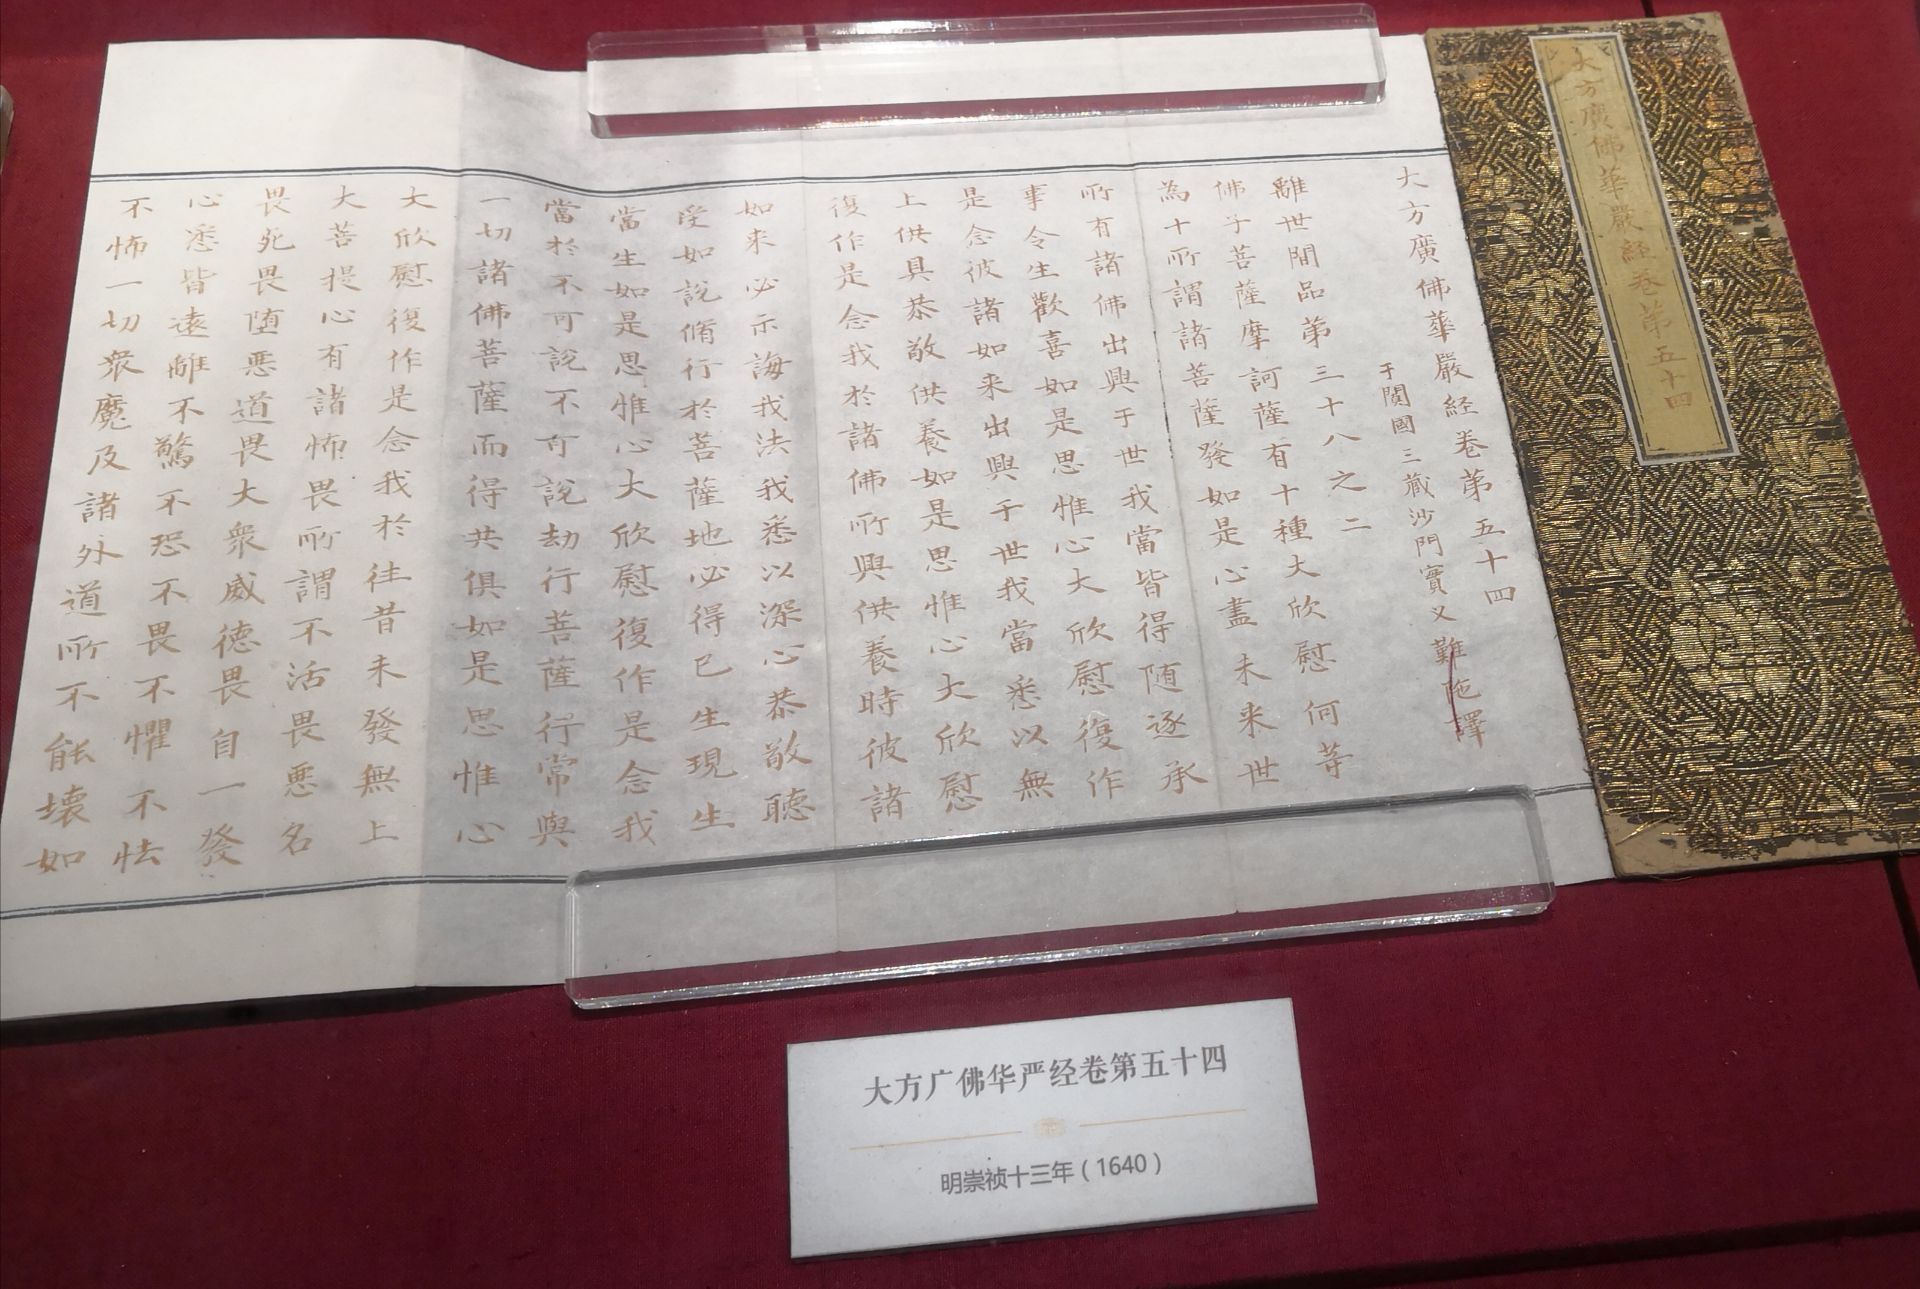 大方廣佛華嚴経卷第五十四
大方廣佛華嚴経卷第五十四
于闐國三藏沙門實叉難陁譯
離世間品第三十八之二
佛子菩薩摩訶薩有十種大欣慰何等
為十所謂諸菩薩發如是心盡未来世
所有諸佛出興于世我當皆得随逐承
事令生歡喜如是思惟心大欣慰復作
是念彼諸如来出興于世我當悉以無
上供具恭敬供養如是思惟心大欣慰
復作是念我於諸佛所興供養時彼諸
如来必示誨我法我悉以深心恭敬聽
受如說脩行於菩薩地必得已生現生
當生如是思惟心大欣慰復作是念我
當於不可說不可說劫行菩薩行常與
一切諸佛菩薩而得共俱如是思惟心
大欣慰復作是念我於往昔未發無上
大菩提心有諸怖畏所謂不活畏惡名
畏死畏堕惡道畏大衆威德畏自一發
心悉皆遠離不驚不恐不畏不懼不怯
不怖一切衆魔及諸外道所不能壞如
大方广佛华严经卷第五十四
明崇祯十三年（1640）